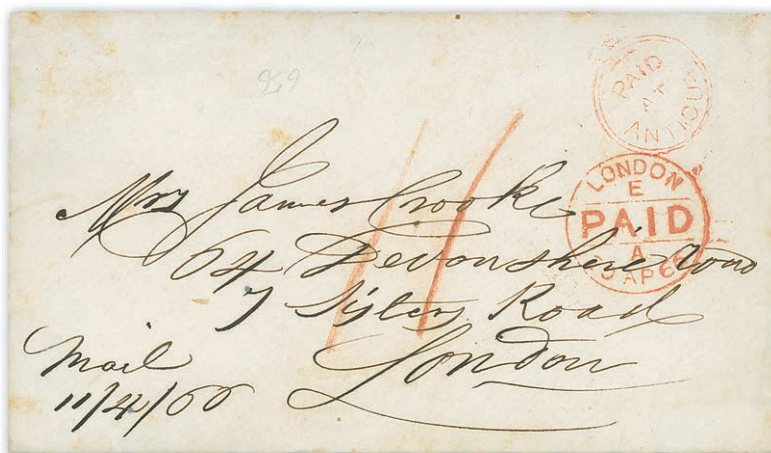 959
PAID
AT
ANTIGUA
LONDON
E
PAID
A
AP 66
11
Mrs James Crooke
64 Devonshire Road
7 Sisters Road
London
Mail
11/4/66